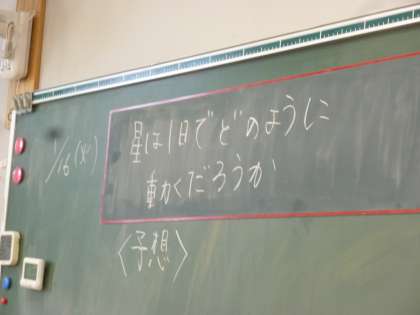 1/16(火)
星は1日でどのように
動かくだろうか
〈予想〉